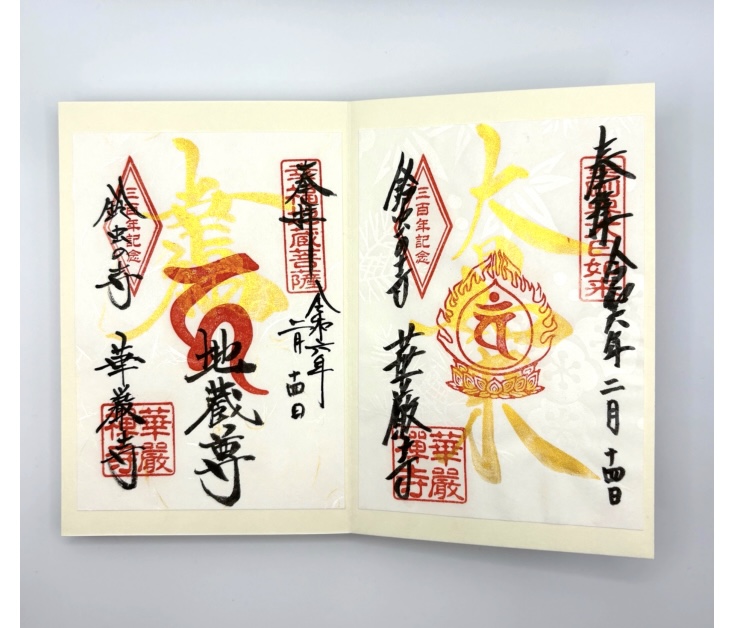 奉拝 令和六年 二月 十四日
大日如来
大日如来
三百年記念
鈴虫の寺 華厳寺
華嚴禪寺
奉拝
幸福地蔵菩薩
令和六年
二月 十四日
地蔵尊
三百年記念
鈴虫の寺 華厳寺
華嚴禪寺